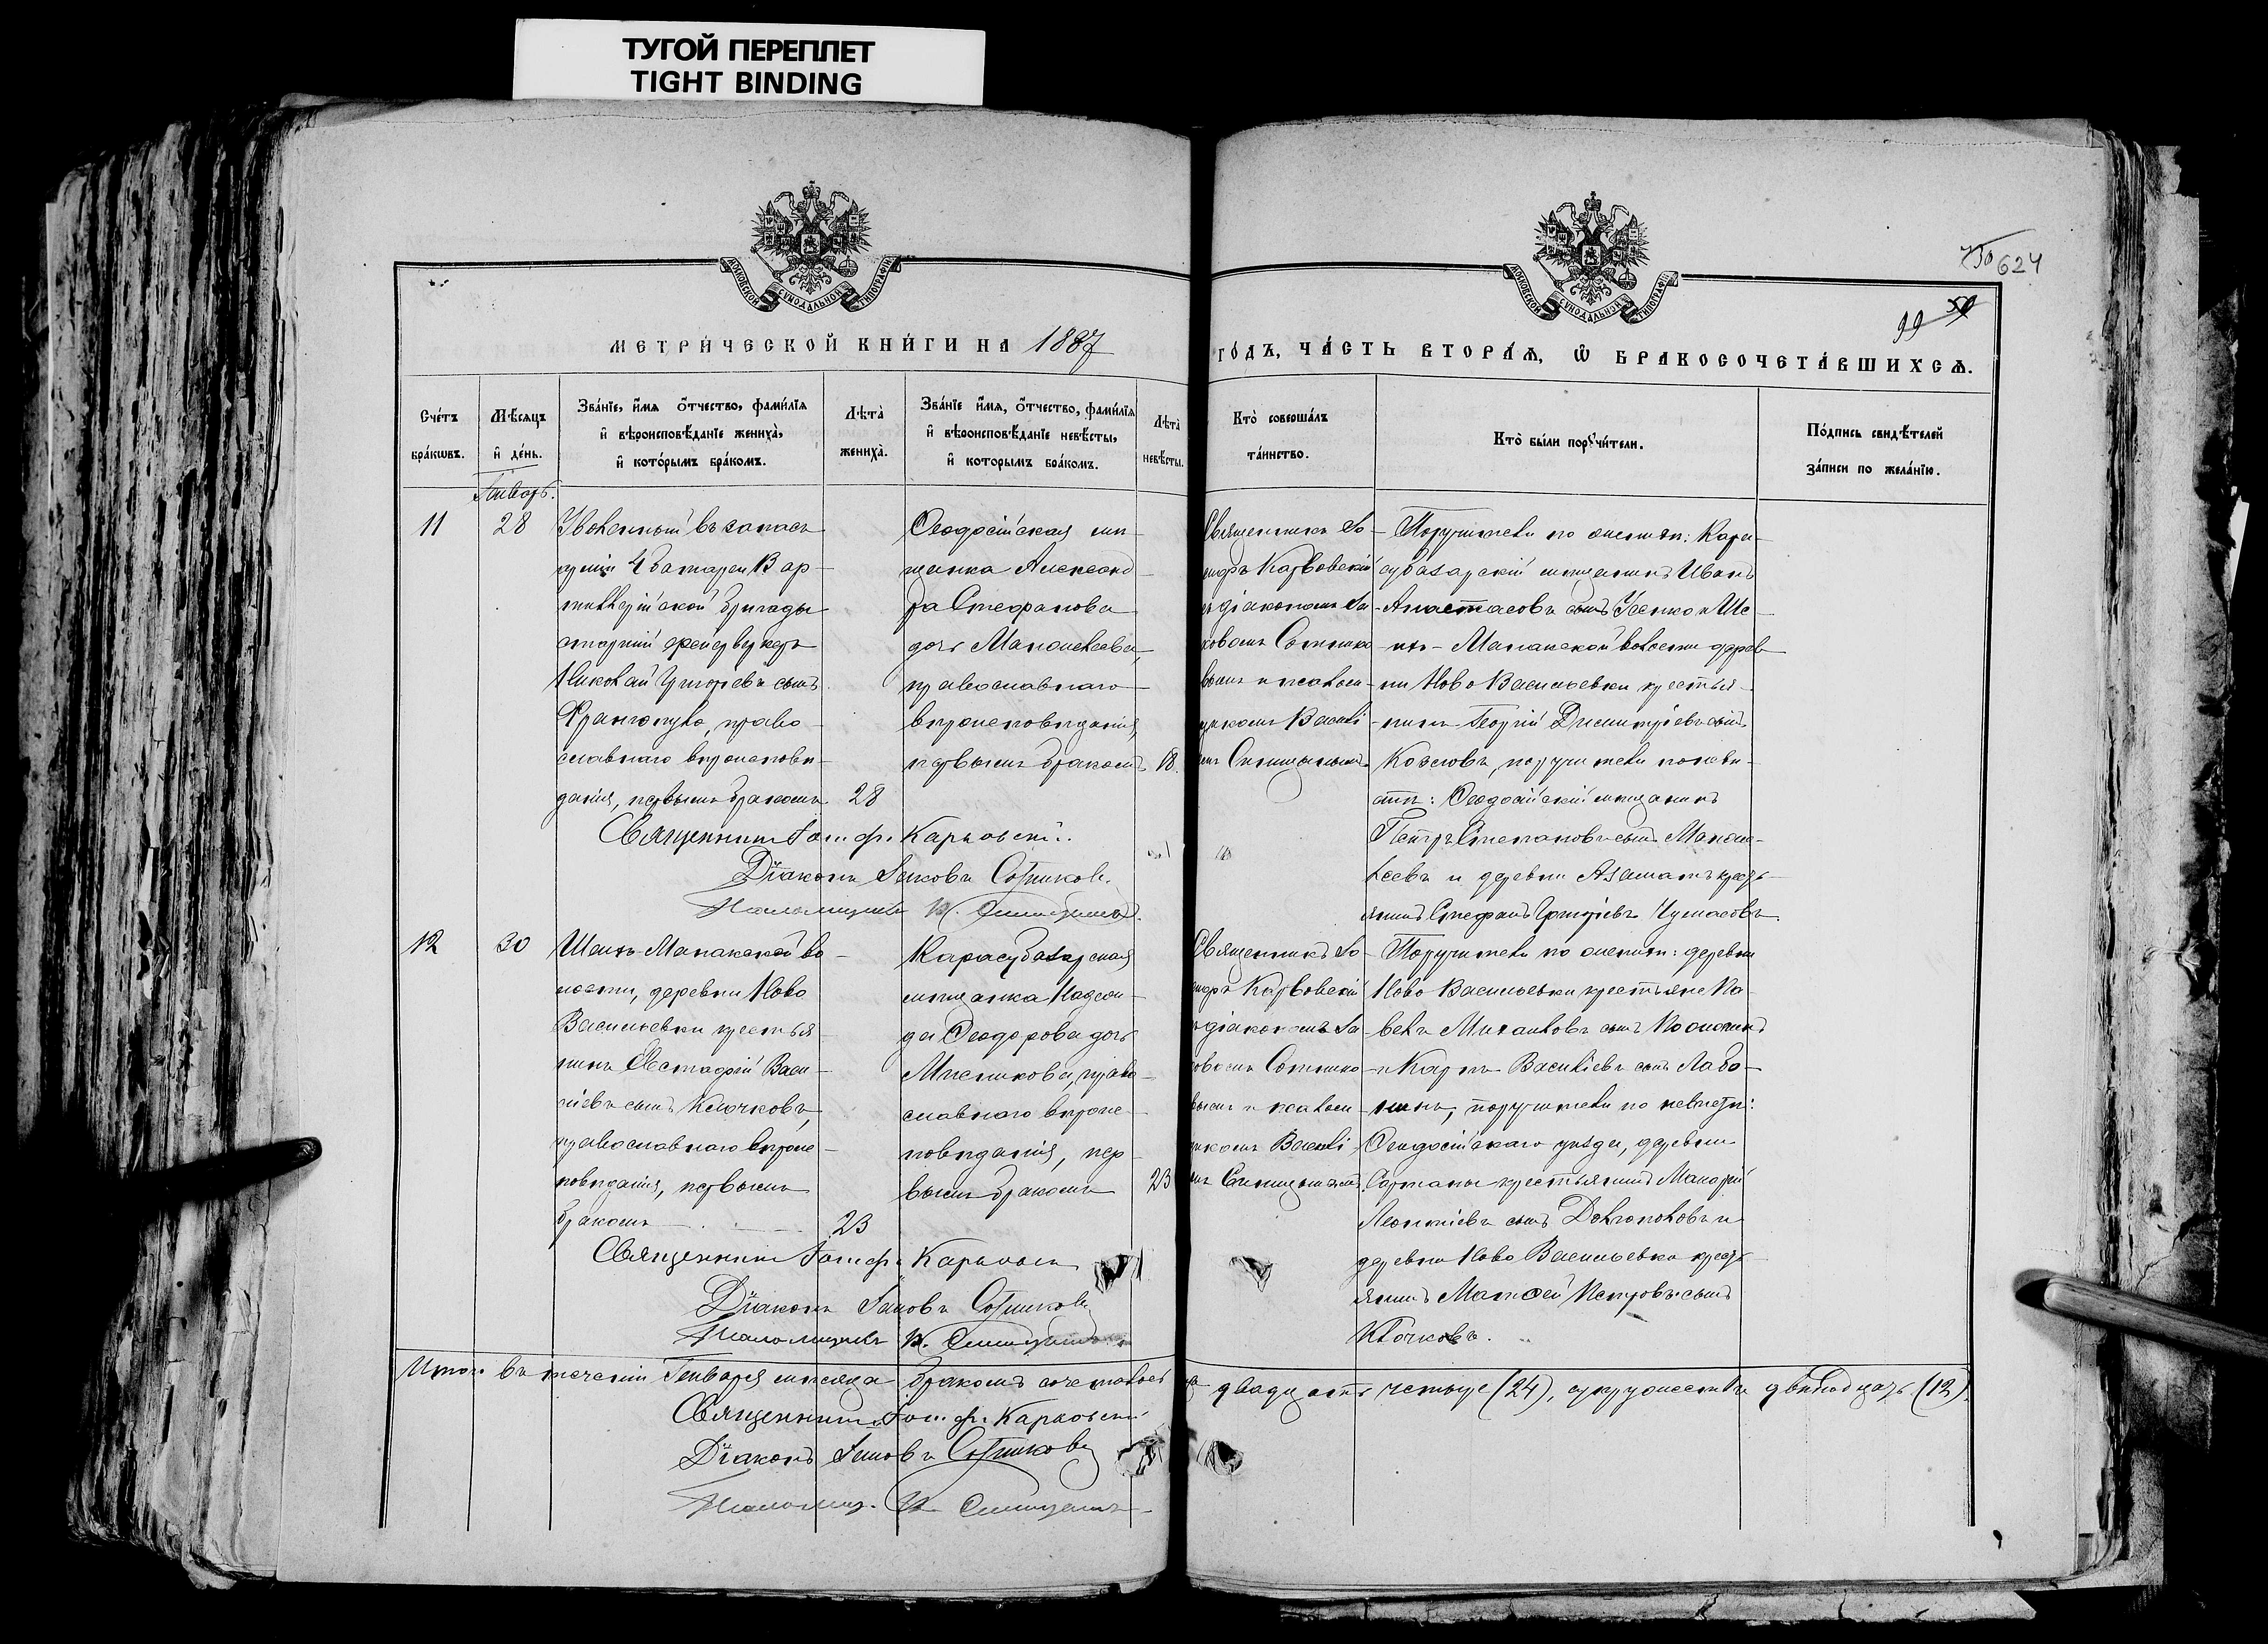 ТУГОЙ ПЕРЕПЛЕТ
TIGHT BINDING
МОСКОВСКОЙ СѴНОДАЛЬНОЙ ТИПОГРАФІИ
МОСКОВСКОЙ СѴНОДАЛЬНОЙ ТИПОГРАФІИ
624
99
МЕТРИ́ЧЕСКОЙ КНИ́ГИ НА 1887
ГО́ДЪ, ЧА́СТЬ ВТОРА́Ѧ, Ѡ БРАКОСОЧЕТА́ВШИХСѦ.
Сче́тъ бра́кѡвъ.
Мѣ́сяцъ и де́нь.
Зва́нїе, и́мя о́тчество, фами́лїя и вѣроисповѣ́данїе жениха̀, и кото́рымъ бра́комъ.
Лѣта̀ жениха̀.
Зва́нїе и́мя, о́тчество, фами́лїя и вѣроисповѣ́данїе невѣ́сты, и которымъ бра́комъ.
Лѣта̀ невѣ́сты.
Кто̀ соверша́лъ та́инство.
Кто̀ бы́ли порꙋчи́тели.
По́дпись свидѣ́телей за́писи по жела́нїю.
Январь.
11
28
Уволенный въ запасъ
арміи 4 батареи В ар-
тиллерійской бригады
старшій фейерверкеръ
Николай Григорьевъ сынъ
православнаго вѣроисповѣ-
данія, первымъ бракомъ
28
Ѳеодосійская мѣ-
щанка Александ-
ра Стефанова
дочь Манойлова,
православнаго
вѣроисповѣданія,
первымъ бракомъ
18.
Священникъ Іо-
сифъ Карповскій
съ діакономъ Іа-
ковомъ Сотнико-
вымъ и псалом-
щикомъ Василі-
Поручители по женихѣ: Кара-
субазарскій мѣщанинъ Иванъ
Анастасовъ сынъ Усенко и Ше-
ихъ-Манакской волости дерев-
ни Ново Васильевки крестья-
нинъ Георгій Димитріевъ сынъ
Козловъ, поручители по невѣ-
стѣ: Ѳеодосійскій мѣщанинъ
Петръ Стефановъ сынъ Маной-
ловъ и деревни Азаматъ крестья-
янинъ Стефанъ Григорьевъ
Священникъ Іосифъ Карповскій.
Діаконъ Іаковъ Сотниковъ.
Псаломщикъ В.
12
30
Шеихъ-Манакской во-
лости, деревни Ново
Васильевки крестья-
нинъ Евстафій Васи-
ліевъ сынъ Клочковъ,
православнаго вѣроис-
повѣданія, первымъ
бракомъ
23
Карасубазарская
мѣщанка Надеж-
да Ѳеодорова дочь
Мѣсникова, право-
славнаго вѣроис-
повѣданія, пер-
вымъ бракомъ
23
Священникъ Іо-
сифъ Карповскій
съ діакономъ Іа-
ковомъ Сотнико-
вымъ и псалом-
щикомъ Василі-
Поручители по женихѣ: деревни
Ново Васильевки крестьяне Па-
велъ Михаиловъ сынъ
и Карпъ Василіевъ сынъ
поручители по невѣстѣ:
Ѳеодосійскаго уѣзда, деревни
крестьянинъ Макарій
Леонтіевъ сынъ и
деревни Ново Васильевка кресть-
янинъ Матѳей Петровъ сынъ
Клочковъ.
Священникъ Іосифъ Карповскій
Діаконъ Іаковъ Сотниковъ
Псаломщикъ В.
Итого въ теченіи Генваря мѣсяца бракомъ сочеталось двадцать четыре (24), супружествъ двѣнадцать (12).
Священникъ Іосифъ Карповскій
Діаконъ Іаковъ Сотниковъ
Псаломщ. В.